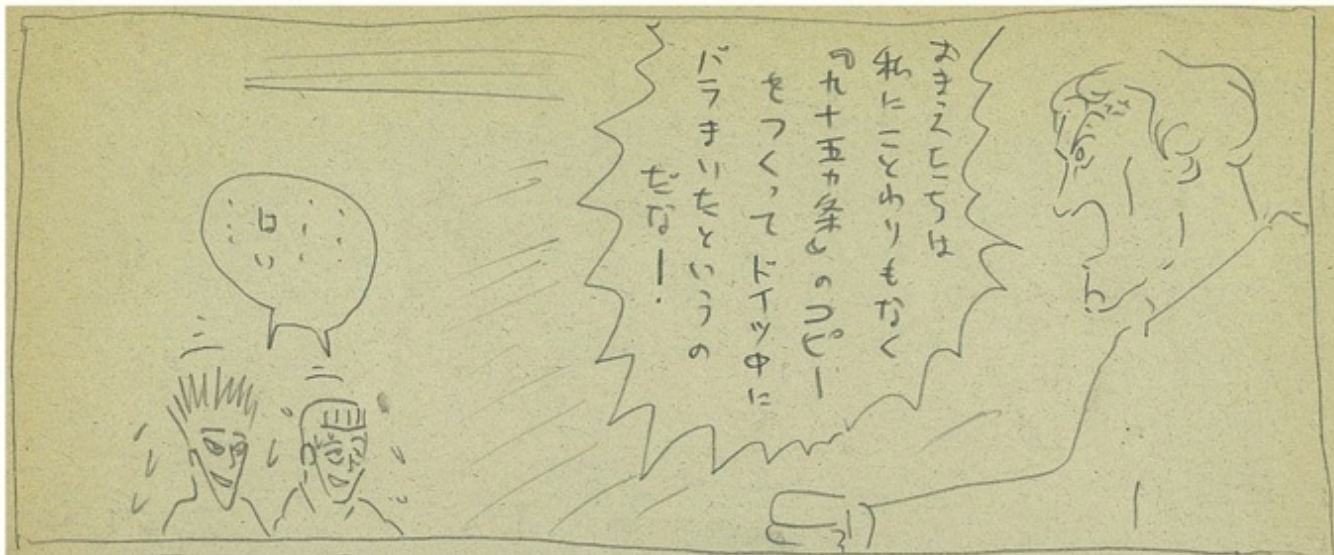 おまえたちは
私にことわりもなく
『九十五カ条』のコピー
をつくって ドイツ中に
バラまいたというの
だな―!
はい